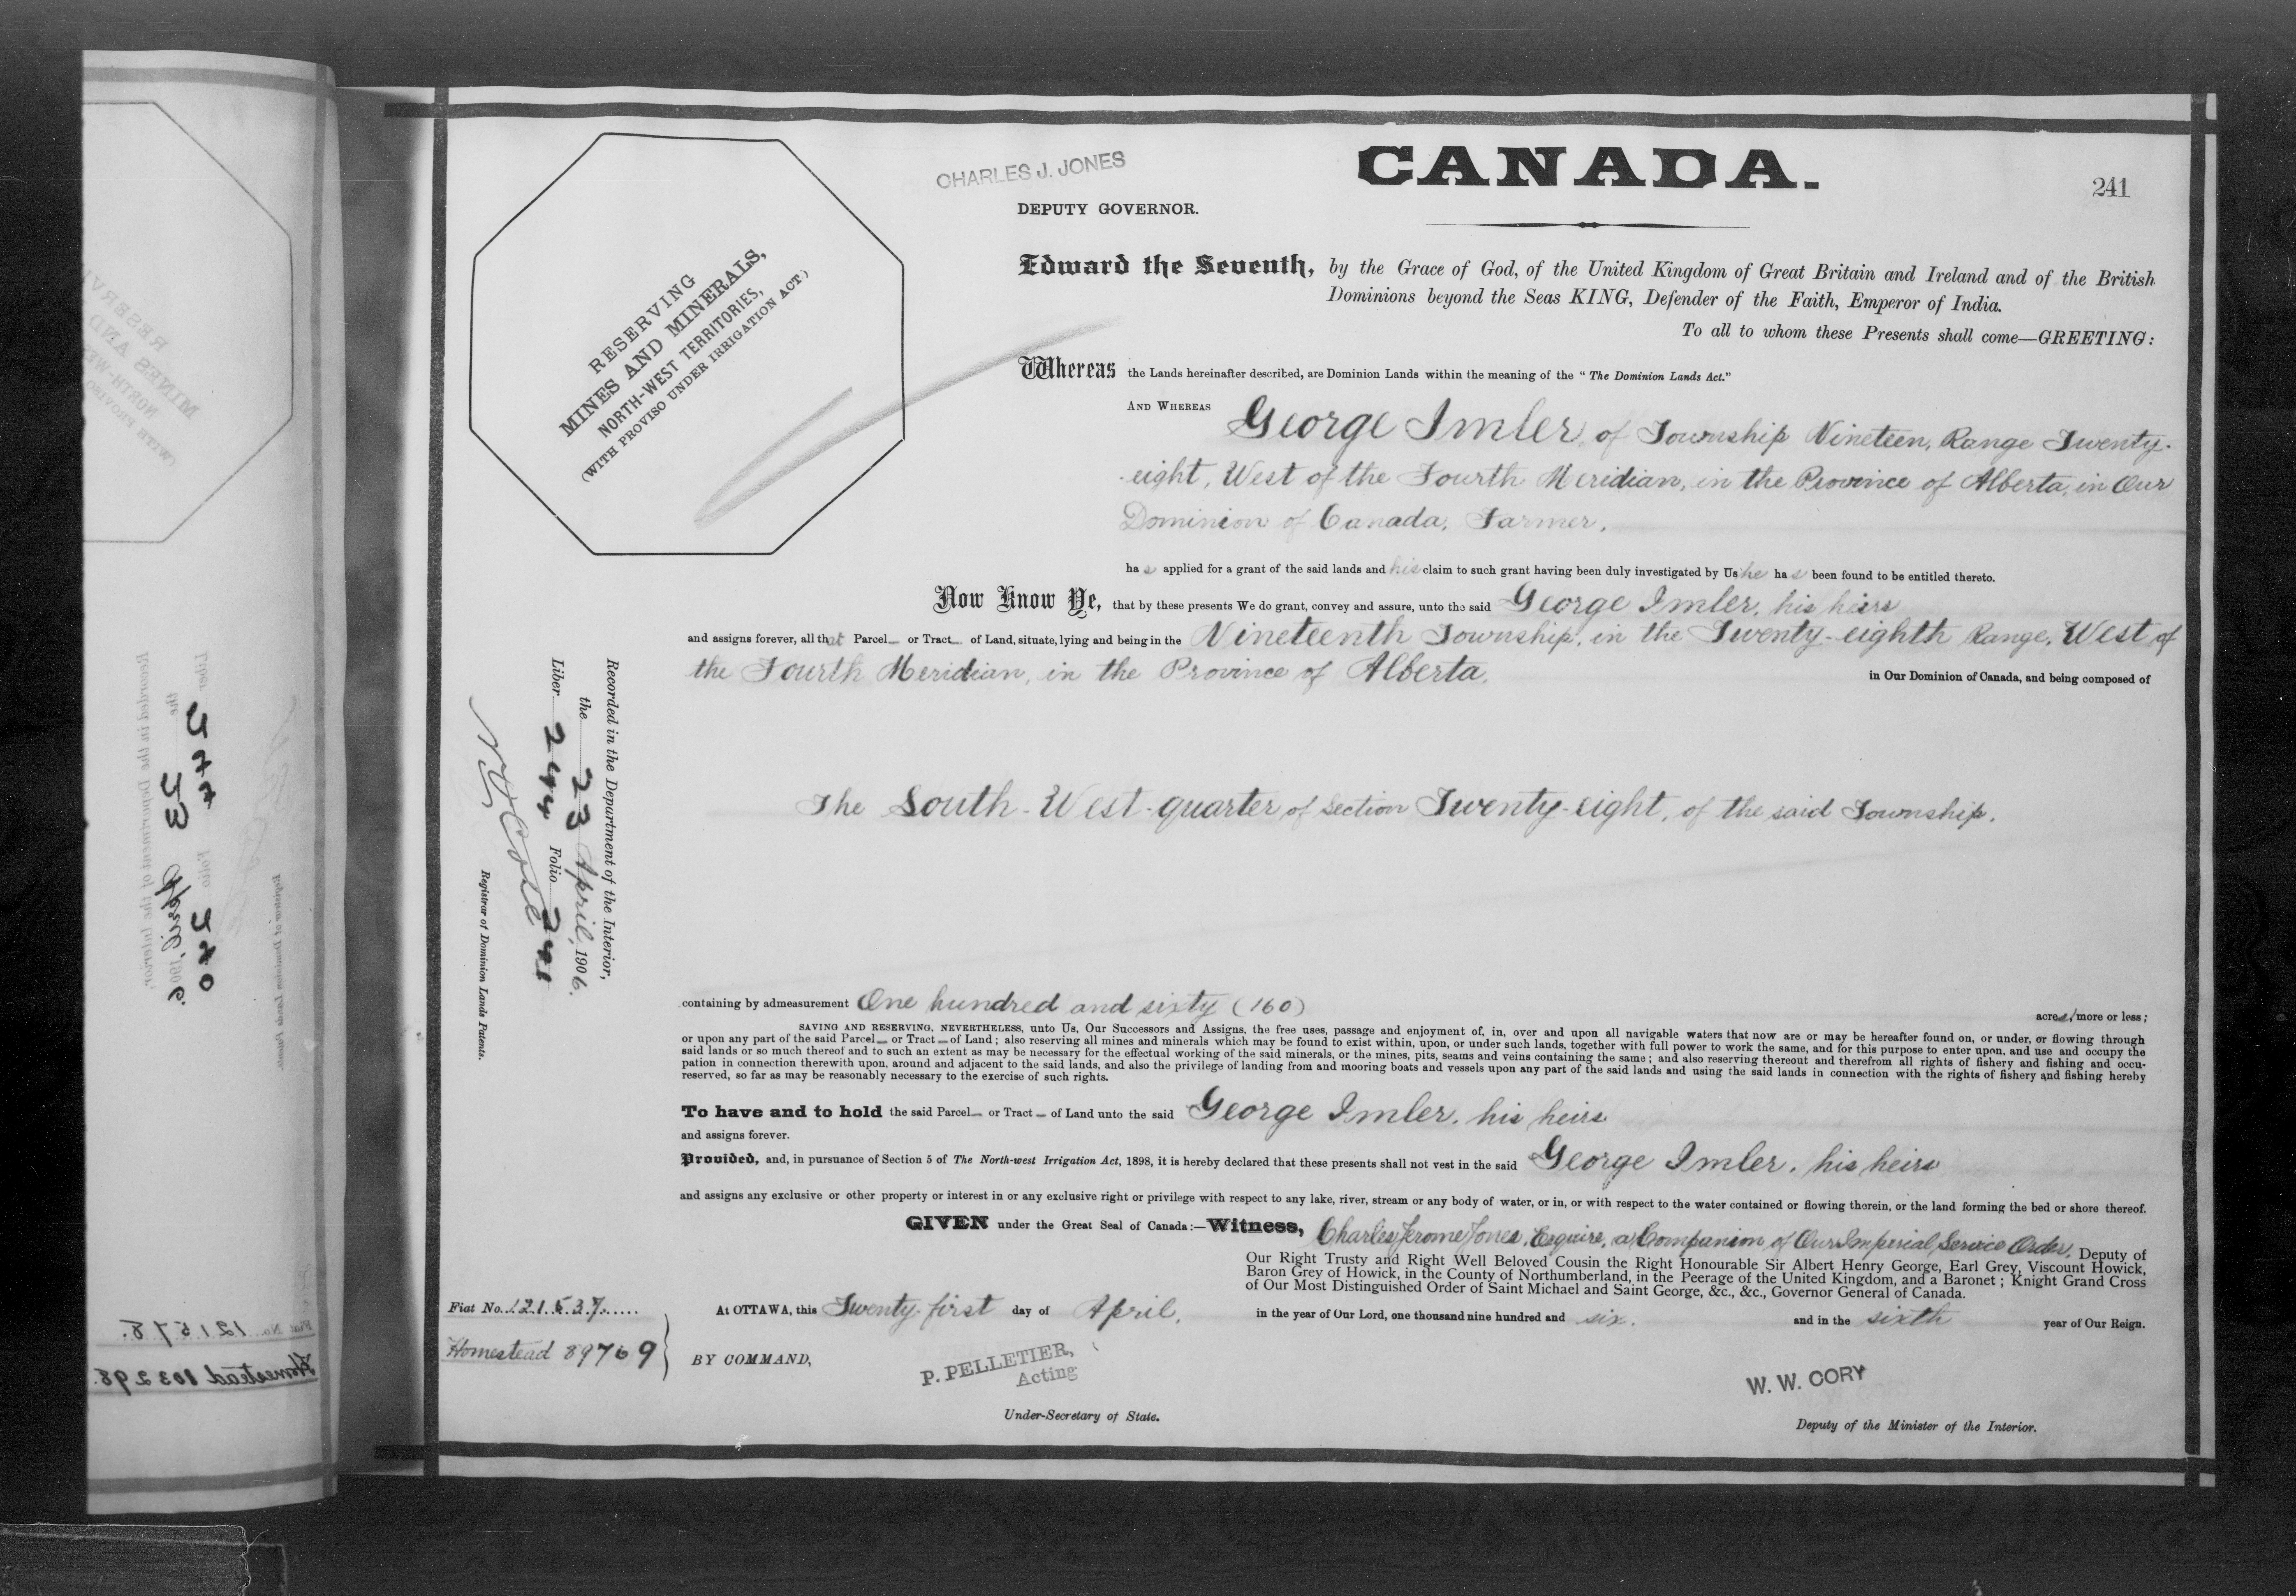 CHARLES J. JONES
DEPUTY GOVERNOR.
CANADA.
241
RESERVING
MINES AND MINERALS,
NORTH-WEST TERRITORIES,
(WITH PROVISO UNDER IRRIGATION ACT.)
Edward the Seventh, by the Grace of God, of the United Kingdom of Great Britain and Ireland and of the British
Dominions beyond the Seas KING, Defender of the Faith, Emperor of India.
To all to whom these Presents shall come—GREETING:
Whereas the Lands hereinafter described, are Dominion Lands within the meaning of the "The Dominion Lands Act."
AND WHEREAS George Imler, of Township Nineteen, Range Twenty-
-eight, West of the Fourth Meridian, in the Province of Alberta, in Our
Dominion of Canada, Farmer,
has applied for a grant of the said lands and his claim to such grant having been duly investigated by Us he has been found to be entitled thereto.
Now Know Ye, that by these presents We do grant, convey and assure, unto the said George Imler, his heirs
and assigns forever, all that Parcel or Tract of Land, situate, lying and being in the Nineteenth Township, in the Twenty-eighth Range, West of
the Fourth Meridian, in the Province of Alberta, in Our Dominion of Canada, and being composed of
The South-West-quarter of Section Twenty-eight, of the said Township.
containing by admeasurement One hundred and sixty (160) acres, more or less;
SAVING AND RESERVING, NEVERTHELESS, unto Us, Our Successors and Assigns, the free uses, passage and enjoyment of, in, over and upon all navigable waters that now are or may be hereafter found on, or under, or flowing through
or upon any part of the said Parcel or Tract of Land; also reserving all mines and minerals which may be found to exist within, upon, or under such lands, together with full power to work the same, and for this purpose to enter upon, and use and occupy the
said lands or so much thereof and to such an extent as may be necessary for the effectual working of the said minerals, or the mines, pits, seams and veins containing the same; and also reserving thereout and therefrom all rights of fishery and fishing and occu-
pation in connection therewith upon, around and adjacent to the said lands, and also the privilege of landing from and mooring boats and vessels upon any part of the said lands and using the said lands in connection with the rights of fishery and fishing hereby
reserved, so far as may be reasonably necessary to the exercise of such rights.
To have and to hold the said Parcel or Tract of Land unto the said George Imler, his heirs
and assigns forever.
Provided, and, in pursuance of Section 5 of The North-west Irrigation Act, 1898, it is hereby declared that these presents shall not vest in the said George Imler, his heirs
and assigns any exclusive or other property or interest in or any exclusive right or privilege with respect to any lake, river, stream or any body of water, or in, or with respect to the water contained or flowing therein, or the land forming the bed or shore thereof.
GIVEN under the Great Seal of Canada:—Witness, Charles Jerome Jones, Esquire, a Companion of Our Imperial Service Order, Deputy of
Our Right Trusty and Right Well Beloved Cousin the Right Honourable Sir Albert Henry George, Earl Grey, Viscount Howick,
Baron Grey of Howick, in the County of Northumberland, in the Peerage of the United Kingdom, and a Baronet; Knight Grand Cross
of Our Most Distinguished Order of Saint Michael and Saint George, &c., &c., Governor General of Canada.
At OTTAWA, this Twenty-first day of April, in the year of Our Lord, one thousand nine hundred and six. and in the sixth year of Our Reign.
Fiat No. 121537
Homestead 89769
BY COMMAND,
P. PELLETIER,
Acting
Under-Secretary of State.
W. W. CORY
Deputy of the Minister of the Interior.
Recorded in the Department of the Interior,
the 23 April, 1906.
Liber 244 Folio 241
Registrar of Dominion Lands Patents.